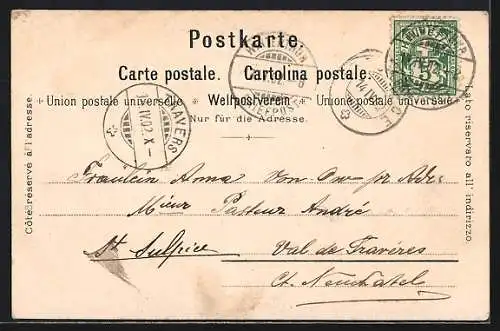 Postkarte.
Carte postale. Cartolina postale.
Union postale universelle Weltpostverein Unione postale universale
Nur für die Adresse.
Côté réservé à l'adresse.
Lato riservato all' indirizzo.
TRAVERS
IV.02.X-
14 IV
5
Fräulein Anna von Ow pr Adr.
Pasteur André
St Sulpice Val de Travères
Ct. Neuchatel